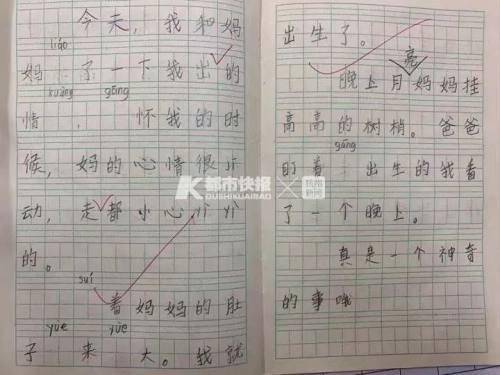 今天，我和妈
liáo
妈 了一下我出的
kuàng gāng
情 ， 怀我的时
候，妈的心情很
动，走都小心
的。
suí
着妈妈的肚
yuè yuè
子 来 大。我就
出生了。
亮
晚上月妈妈挂
高高的树梢。爸爸
gāng
盯着 出生的我看
了一个晚上。
真是一个神奇
的事哦
K 都市快报
DUSHIKUAIBAO
杭州新闻